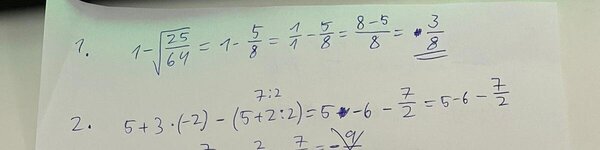 1. 1-√(25/64) = 1 - 5/8 = 1/1 - 5/8 = 8-5/8 = 3/8
7:2
2. 5+3·(-2) - (5+2:2) = 5 -6 - 7/2 = 5-6 - 7/2